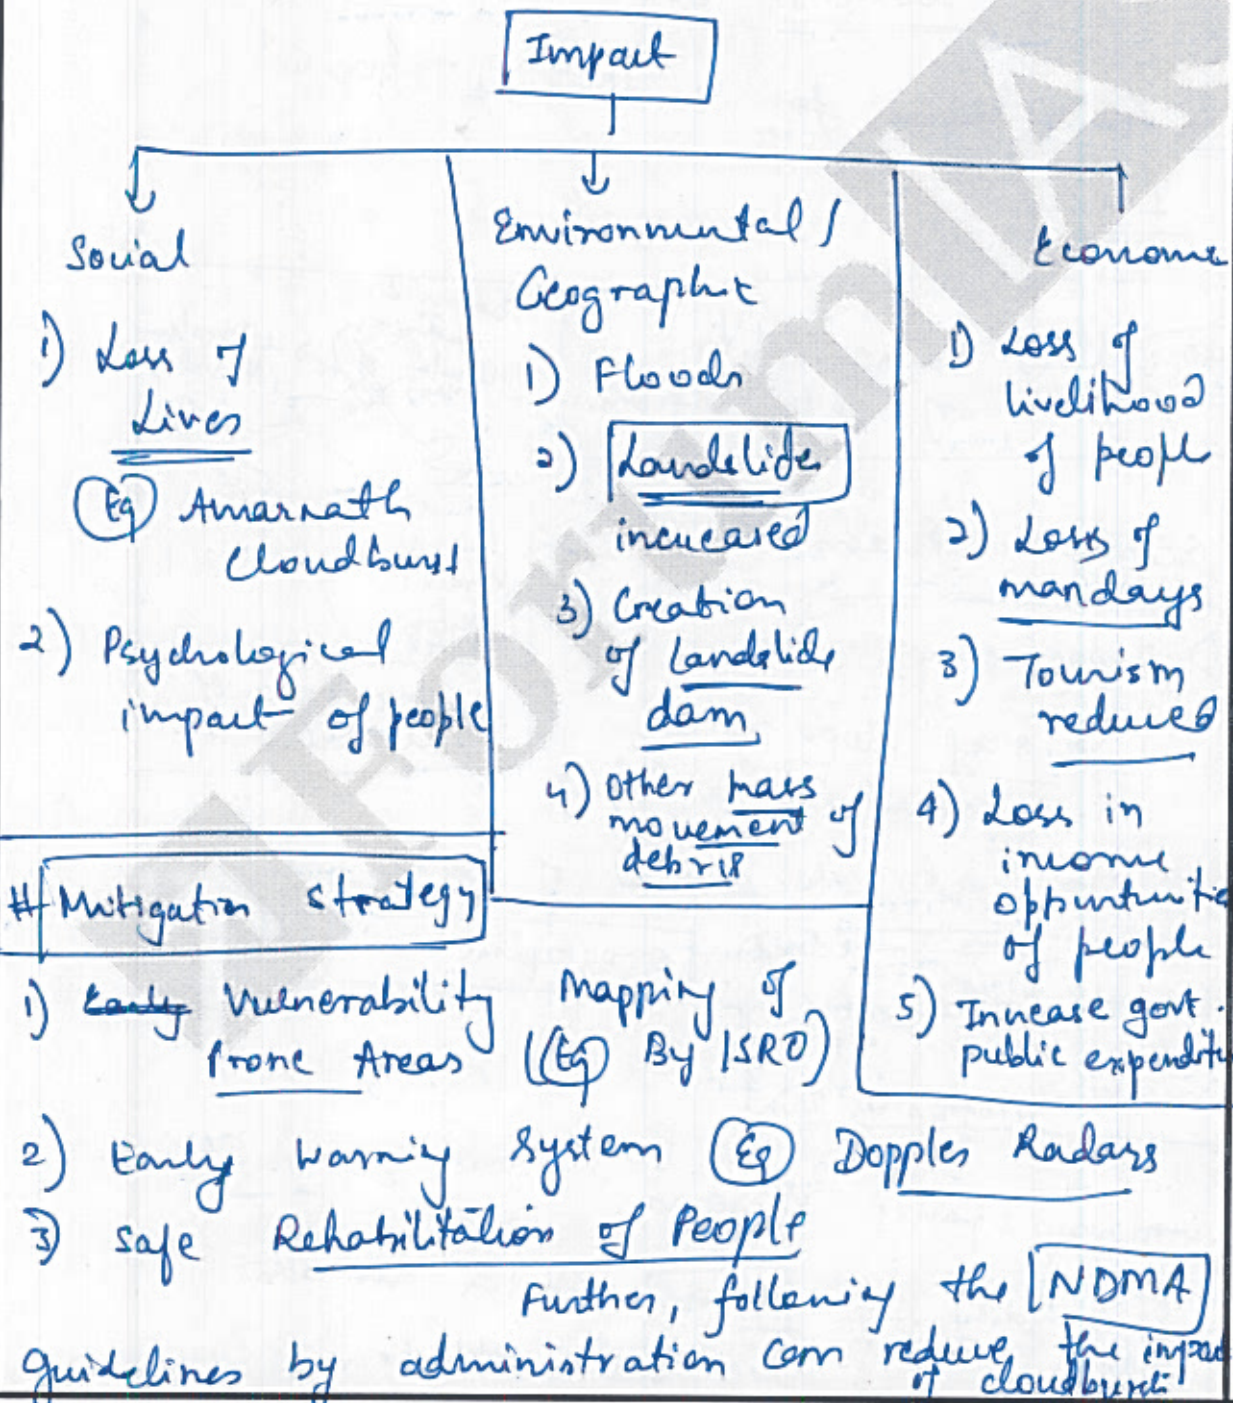 Impact
Social
1) Loss of
Lives
Eg Amarnath
Cloudburst
2) Psychological
impact of people
Environmental /
Geographic
1) Floods
2) Landslides
increased
3) Creation
of Landslide
dam
4) Other mass
movement of
debris
Economic
1) Loss of
livelihood
of people
2) Loss of
mandays
3) Tourism
reduced
4) Loss in
income
opportunitie
of people
5) Increase govt.
public expenditu
# Mitigation Strategy
1) Early Vulnerability Mapping of
Prone Areas (Eg By ISRO)
2) Early Warning System Eg Doppler Radars
3) Safe Rehabilitation of People
Further, following the NDMA
guidelines by administration can reduce the impact
of cloudburst
ForumIAS